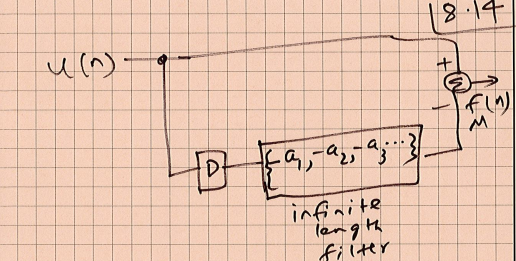 18.14
u(n)
+
Σ
−
f(n)
M
D
{-a₁, -a₂, -a₃, ...}
infinite
length
filter